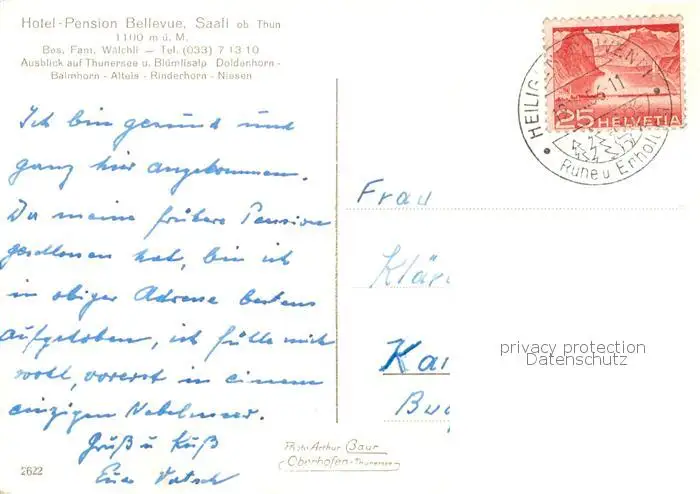 Hotel-Pension Bellevue, Saali ob Thun
1100 m ü. M.
Bes. Fam. Wälchli — Tel. (033) 7 13 10
Ausblick auf Thunersee u. Blümlisalp Doldenhorn -
Balmhorn - Altels - Rinderhorn - Niesen
Ich bin gesund und
ganz hier angekommen.
Da meine frühere Pension
geschlossen hat, bin ich
in obiger Adresse bestens
aufgehoben, ich fühle mich
wohl, vorerst in einem
einzigen Nebelmeer.
Gruß u Kuß
Euer
2622
Photo Arthur Baur
Oberhofen-Thunersee
25 HELVETIA
HEILIGENSCHWENDI
-11
Ruhe u Erholung
Frau
Klär
Ka
privacy protection
Datenschutz